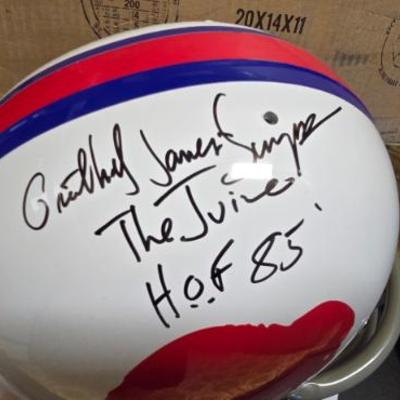 20X14X11
200
Orenthal James Simpson
The Juice
H.O.F 85'